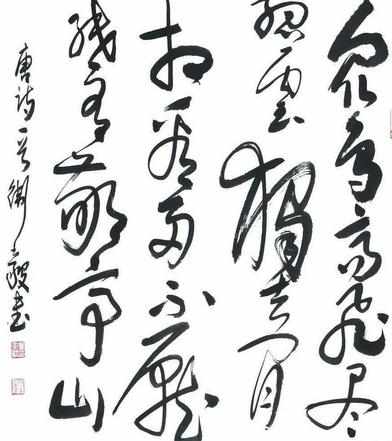 众鸟高飞尽
孤云独去闲
相看两不厌
只有敬亭山
唐诗一首 毅书